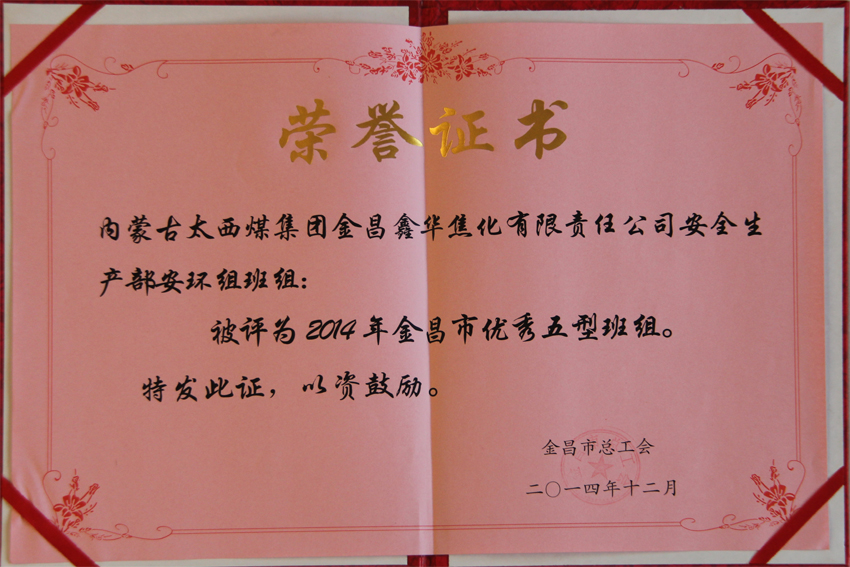 荣誉证书
内蒙古太西煤集团金昌鑫华焦化有限责任公司安全生
产部安环组班组：
被评为2014年金昌市优秀五型班组。
特发此证，以资鼓励。
金昌市总工会
二〇一四年十二月